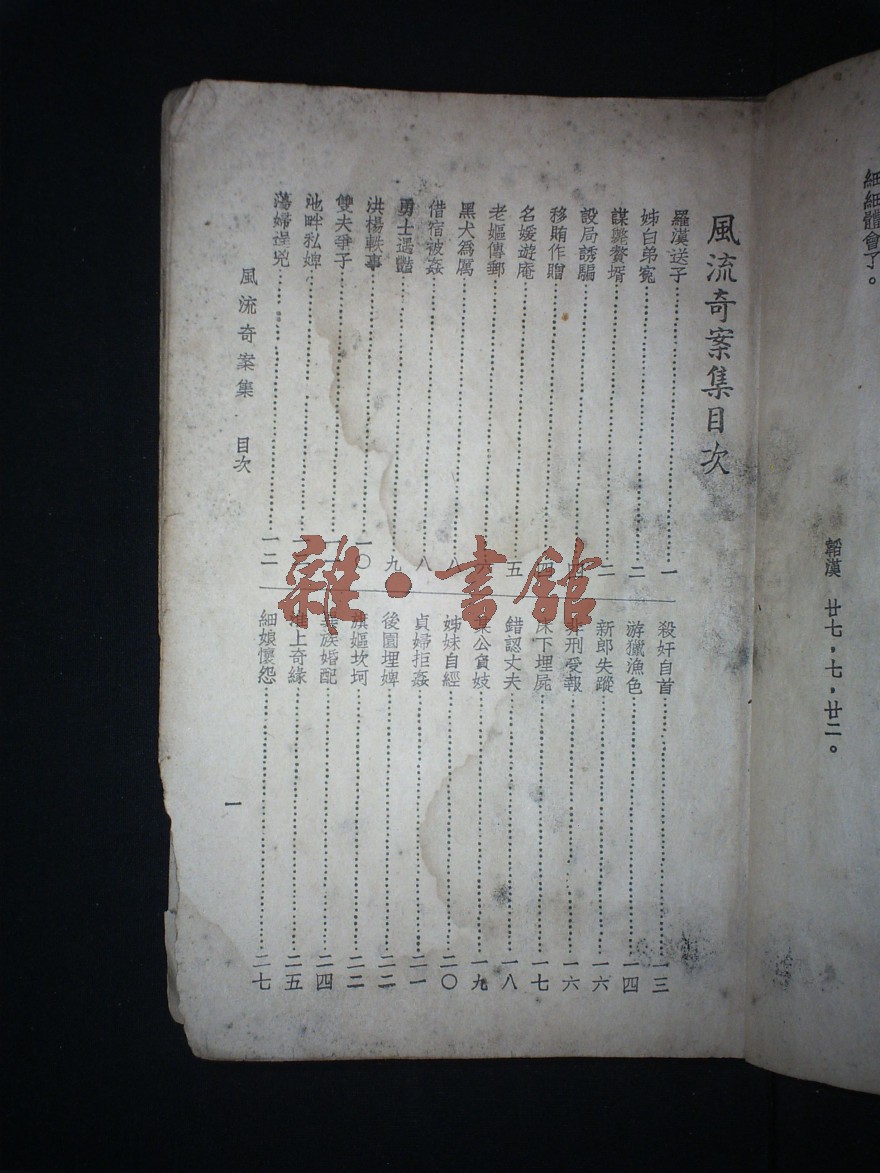 細細體會了。
韜漢　廿七・七・廿二。
風流奇案集目次
羅漢送子……一
姊白弟冤……二
謀斃贅壻……二
設局誘騙……四
移賄作贈……四
名媛遊庵……五
老嫗傳郵……六
黑犬為厲……八
借宿被姦……八
勇士遇豔……九
洪楊軼事……一〇
雙夫爭子……一一
池畔私婢……
蕩婦逞兇……一二
殺奸自首……一三
游獵漁色……一四
新郎失蹤……一六
非刑受報……一六
床下埋屍……一七
錯認丈夫……一八
某公負妓……一九
姊妹自經……二〇
貞婦拒姦……二一
後園埋婢……二二
旗嫗坎坷……二二
異族婚配……二四
淮上奇緣……二五
細娘懷怨……二七
風流奇案集　目次
一
雜・書館